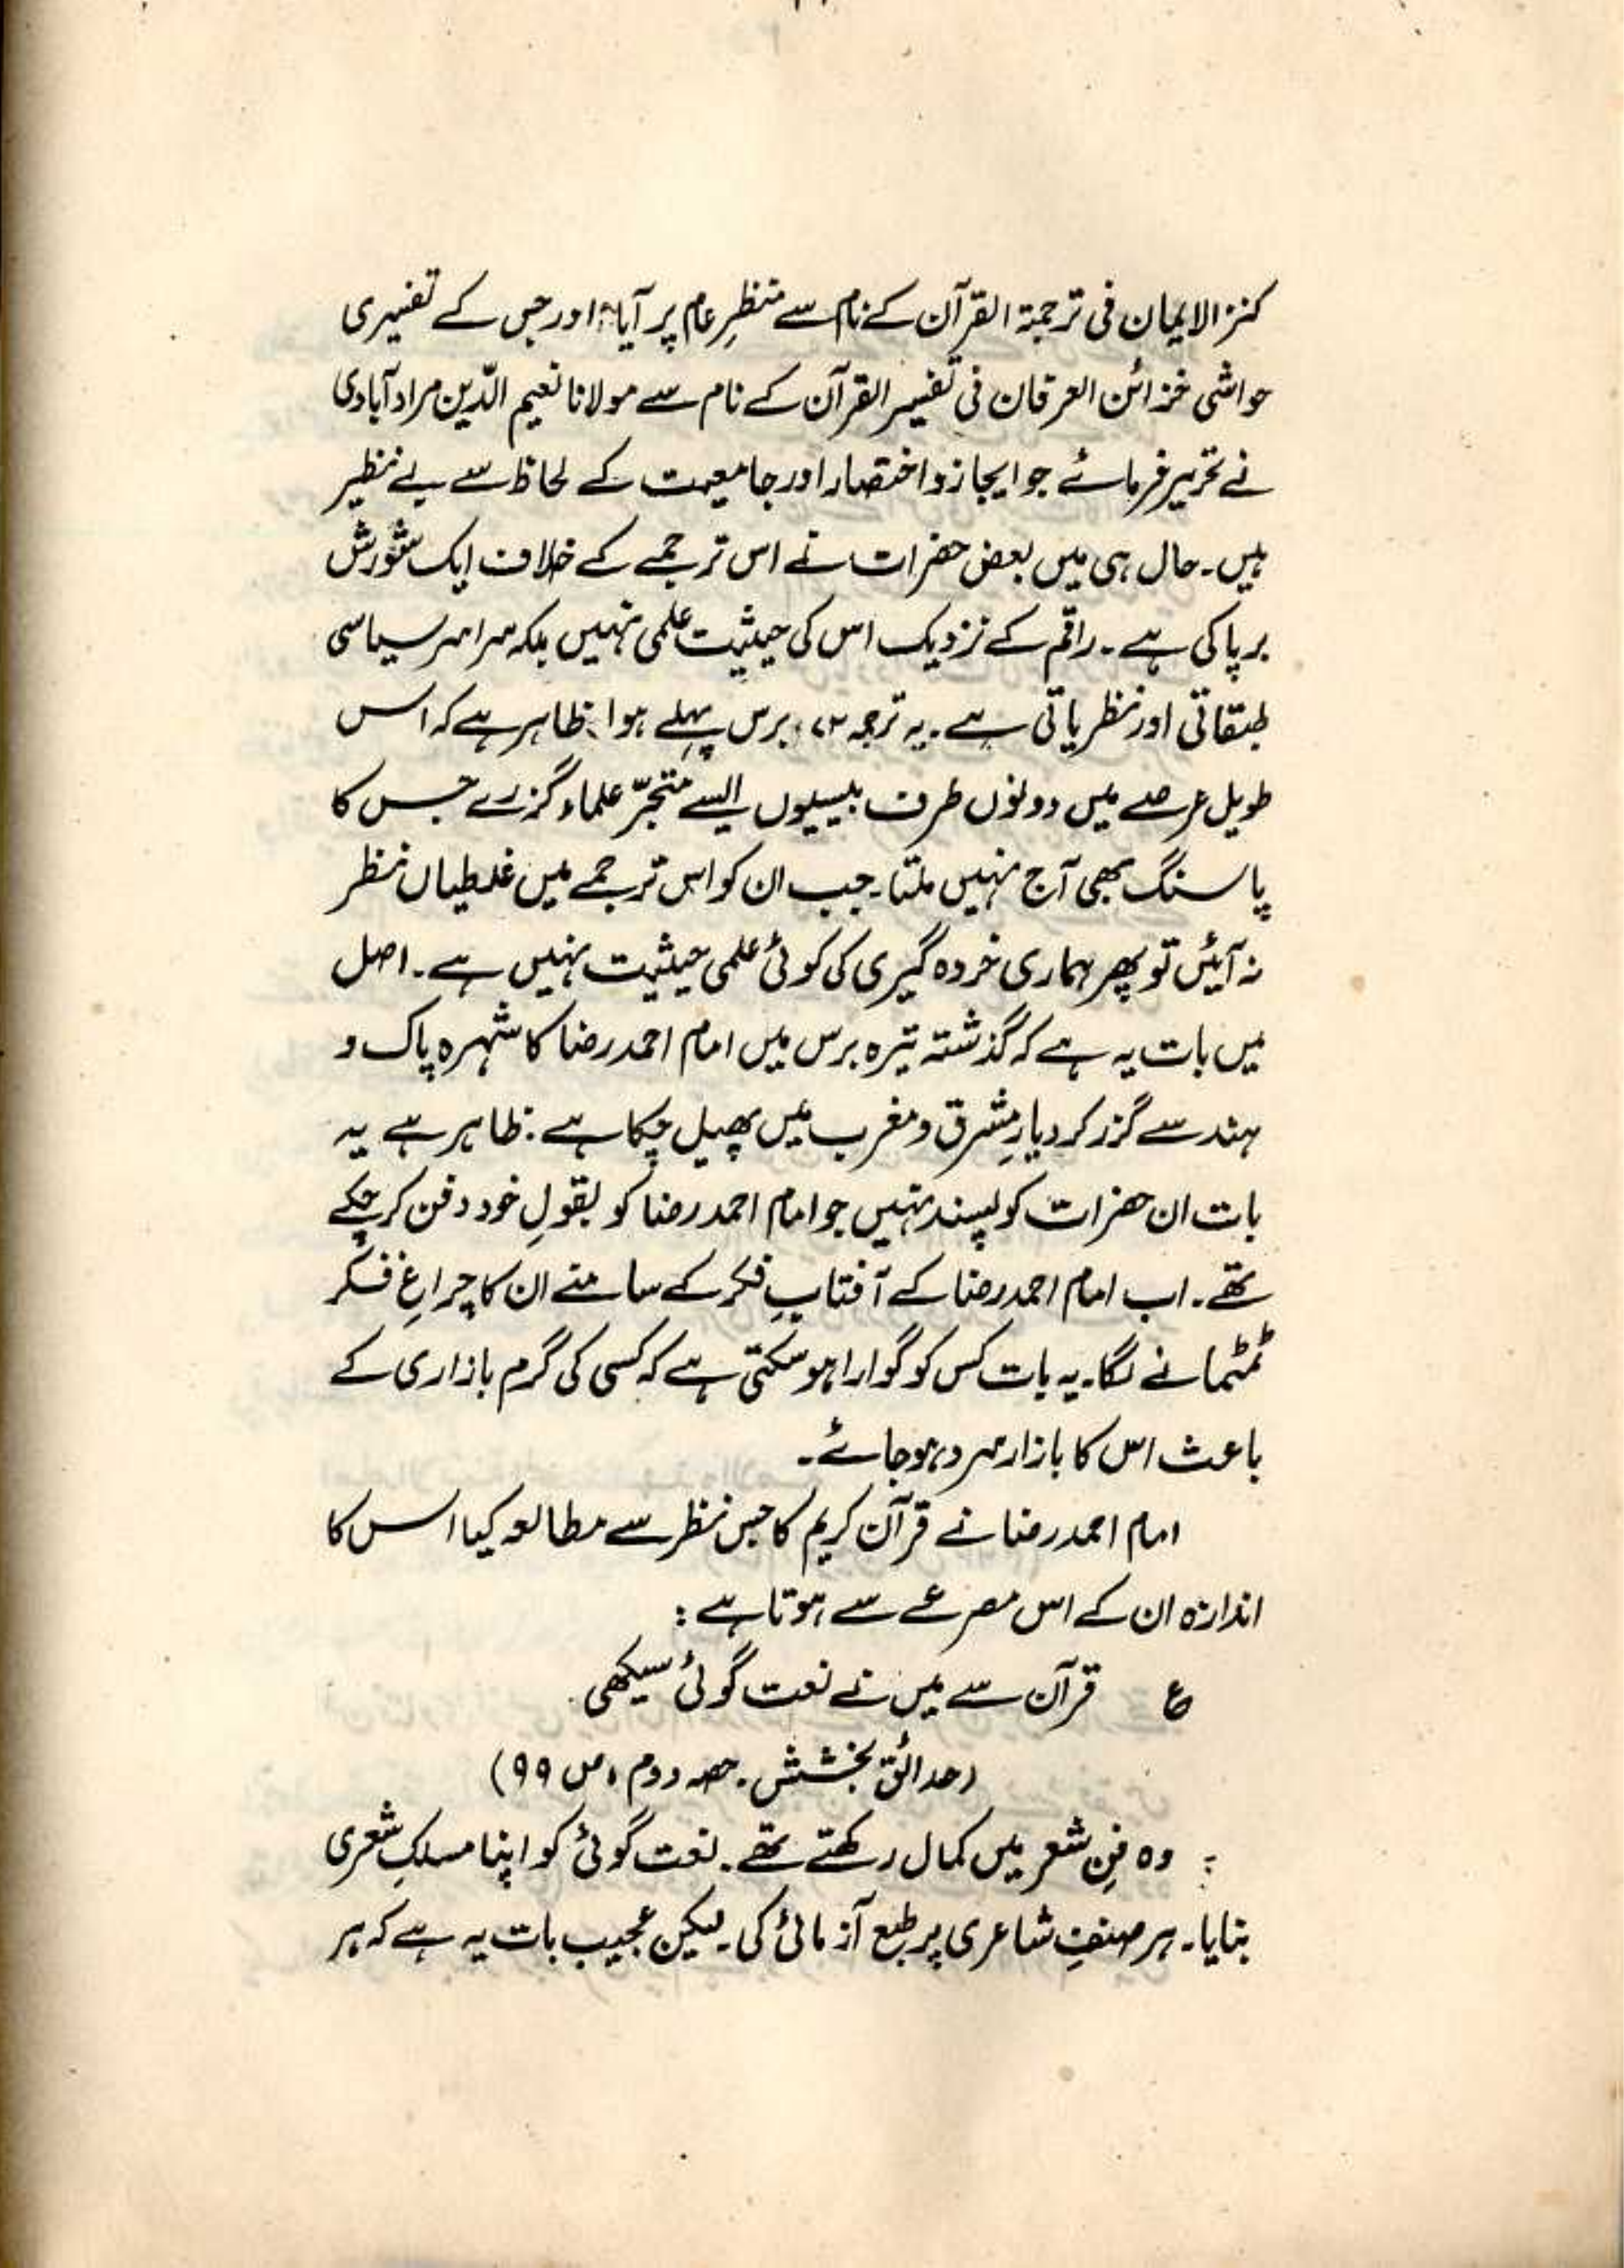 کنز الایمان فی ترجمۃ القرآن کے نام سے منظرِ عام پر آیا، اور جس کے تفسیری
حواشی خزائن العرفان فی تفسیر القرآن کے نام سے مولانا نعیم الدّین مراد آبادی
نے تحریر فرمائے جو ایجاز و اختصار اور جامعیت کے لحاظ سے بے نظیر
ہیں۔ حال ہی میں بعض حضرات نے اس ترجمے کے خلاف ایک شورش
برپا کی ہے۔ راقم کے نزدیک اس کی حیثیت علمی نہیں بلکہ سراسر سیاسی
طبقاتی اور نظریاتی ہے۔ یہ ترجمہ ۷۳ برس پہلے ہوا، ظاہر ہے کہ اس
طویل عرصے میں دونوں طرف بیسیوں ایسے متبحّر علماء گزرے جس کا
پاسنگ بھی آج نہیں ملتا۔ جب ان کو اس ترجمے میں غلطیاں نظر
نہ آئیں تو پھر ہماری خردہ گیری کی کوئی علمی حیثیت نہیں ہے۔ اصل
میں بات یہ ہے کہ گذشتہ تیرہ برس میں امام احمد رضا کا شہرہ پاک و
ہند سے گزر کر دیارِ مشرق و مغرب میں پھیل چکا ہے۔ ظاہر ہے یہ
بات ان حضرات کو پسند نہیں جو امام احمد رضا کو بقولِ خود دفن کر چکے
تھے۔ اب امام احمد رضا کے آفتابِ فکر کے سامنے ان کا چراغِ فکر
ٹمٹمانے لگا۔ یہ بات کس کو گوارا ہو سکتی ہے کہ کسی کی گرم بازاری کے
باعث اس کا بازار سرد ہو جائے۔
امام احمد رضا نے قرآن کریم کا جس نظر سے مطالعہ کیا اس کا
اندازہ ان کے اس مصرعے سے ہوتا ہے :
ع قرآن سے میں نے نعت گوئی سیکھی
(حدائق بخشش۔ حصہ دوم، ص ۹۹)
وہ فنِ شعر میں کمال رکھتے تھے۔ نعت گوئی کو اپنا مسلکِ شعری
بنایا۔ ہر صنفِ شاعری پر طبع آزمائی کی۔ لیکن عجیب بات یہ ہے کہ ہر